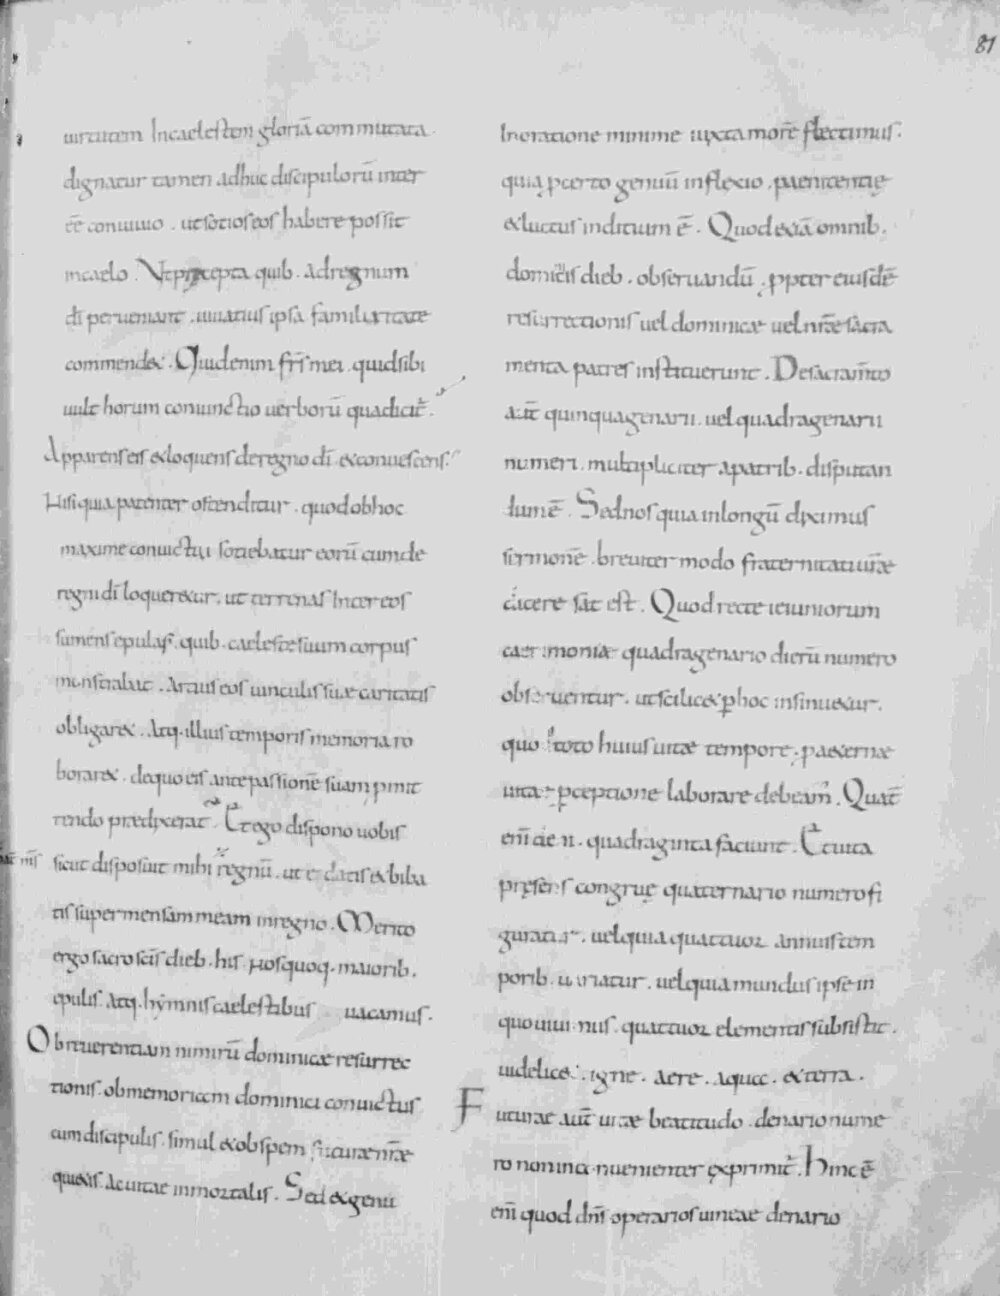 87
uirtutem Incaelestem gloriā commutata.
dignatur tamen adhuc discipulorū inter
eē conuiuio. ut sotios eos habere possit
incaelo. Ut pręcepta quib. adregnum
dī perueniant. uiuatius ipsa familiaritate
commendet. Quidenim frīs mei. quidsibi
uult horum coniunctio uerborū quadicit̄.
Apparens eis et loquens deregno dī. et conuescens.
Nisi quia patenter ostenditur. quod obhoc
maxime conuictui sotiebatur eorū cumde
regno dī loqueretur. ut terrenas Inter eos
sumens epulas. quib. caeleste suum corpus
monstrabat. Artius eos uinculis suae caritatis
obligaret. Atq. illius temporis memoria ro
boraret. dequo eis ante passionē suam pmit
tendo praedixerat. Et ego dispono uobis
sicut disposuit mihi regnū. ut edatis et biba
tis super mensam meam in regno. Merito
ergo sacro scīs dieb. his. nosquoq. maiorib.
epulis. Atq. hymnis caelestibus uacamus.
Ob reuerentiam nimirū dominicae resurrec
tionis. ob memoriam dominici conuictus
cum discipulis. simul et ob spem futurae nr̄ae
quietis. Ac uitae inmortalis. Sed et genu
In oratione minime iuxta morē flectimus.
quia pcerto genuū inflexio. paenitentię
et luctus inditium ē. Quod etiā omnib.
domicis dieb. obseruandū. ppter eiusdē
resurrectionis uel dominicae uel nr̄ae sacra
menta patres instituerunt. De sacram̄to
aut̄ quinquagenarii. uel quadragenarii
numeri. multipliciter apatrib. disputan
dum ē. Sed nos quia in longū diximus
sermonē. breuiter modo fraternitati ur̄ae
dicere sat est. Quod recte ieiuniorum
caerimoniae quadragenario dierū numero
obseruentur. ut scilicet p hoc insinuetur.
quo toto huius uitae tempore. p aeternae
uitae pceptione laborare debeam̄. Quat̄
enī den. quadraginta faciunt. Et uita
pręsens congrue quaternario numero fi
guratur. uel quia quattuor annuis tem
porib. uariatur. uel quia mundus ipse in
quo uiuimus. quattuor elementis subsistit.
uidelicet. igne. aere. aqua. et terra.
Futurae aut̄ uitae beatitudo. denario nume
ro non inconuenienter exprimit̄. Hinc ē
enī quod dn̄s operarios uineae denario